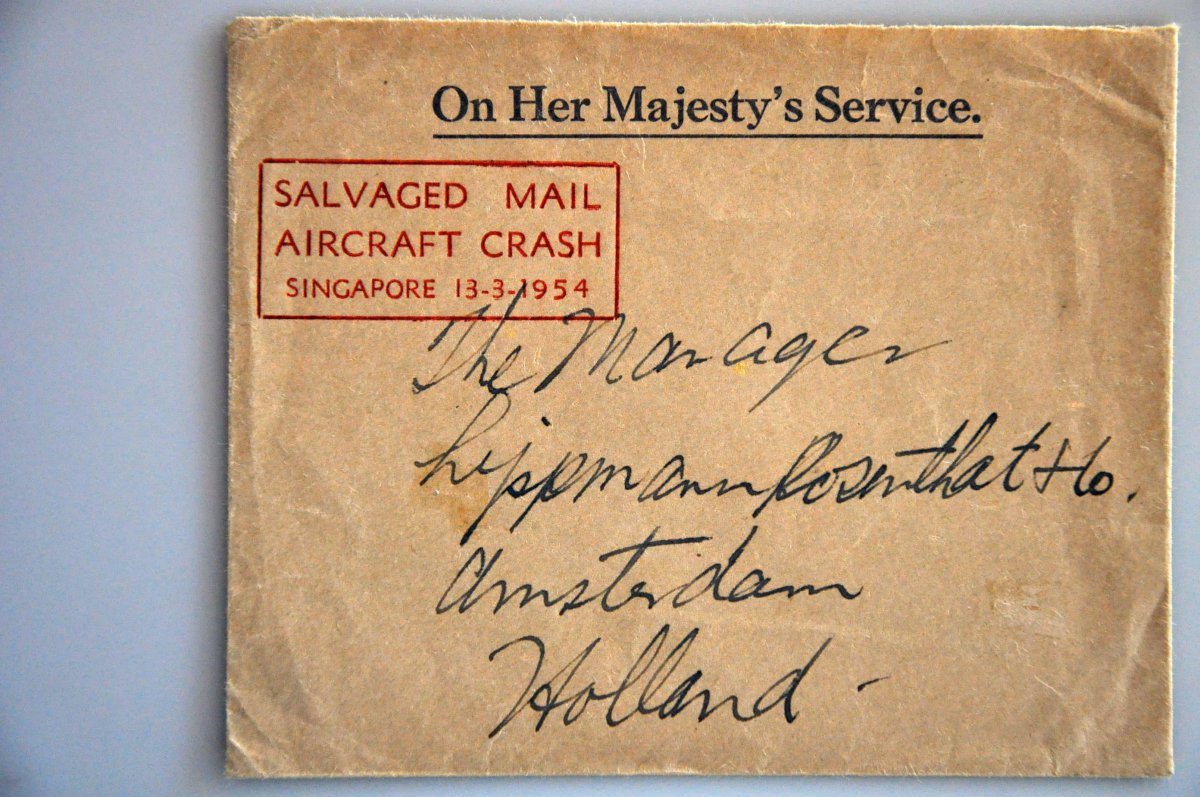 On Her Majesty's Service.
SALVAGED MAIL
AIRCRAFT CRASH
SINGAPORE 13-3-1954
The Manager
Lippmann Rosenthal & Co.
Amsterdam
Holland -